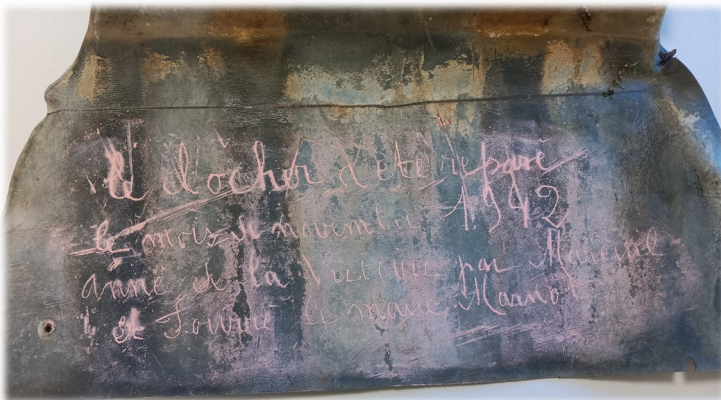 le clocher d'été reparé
le mois de novembre 1942
anné de la Victoire par Marcine
et Fourré le maire Marnot